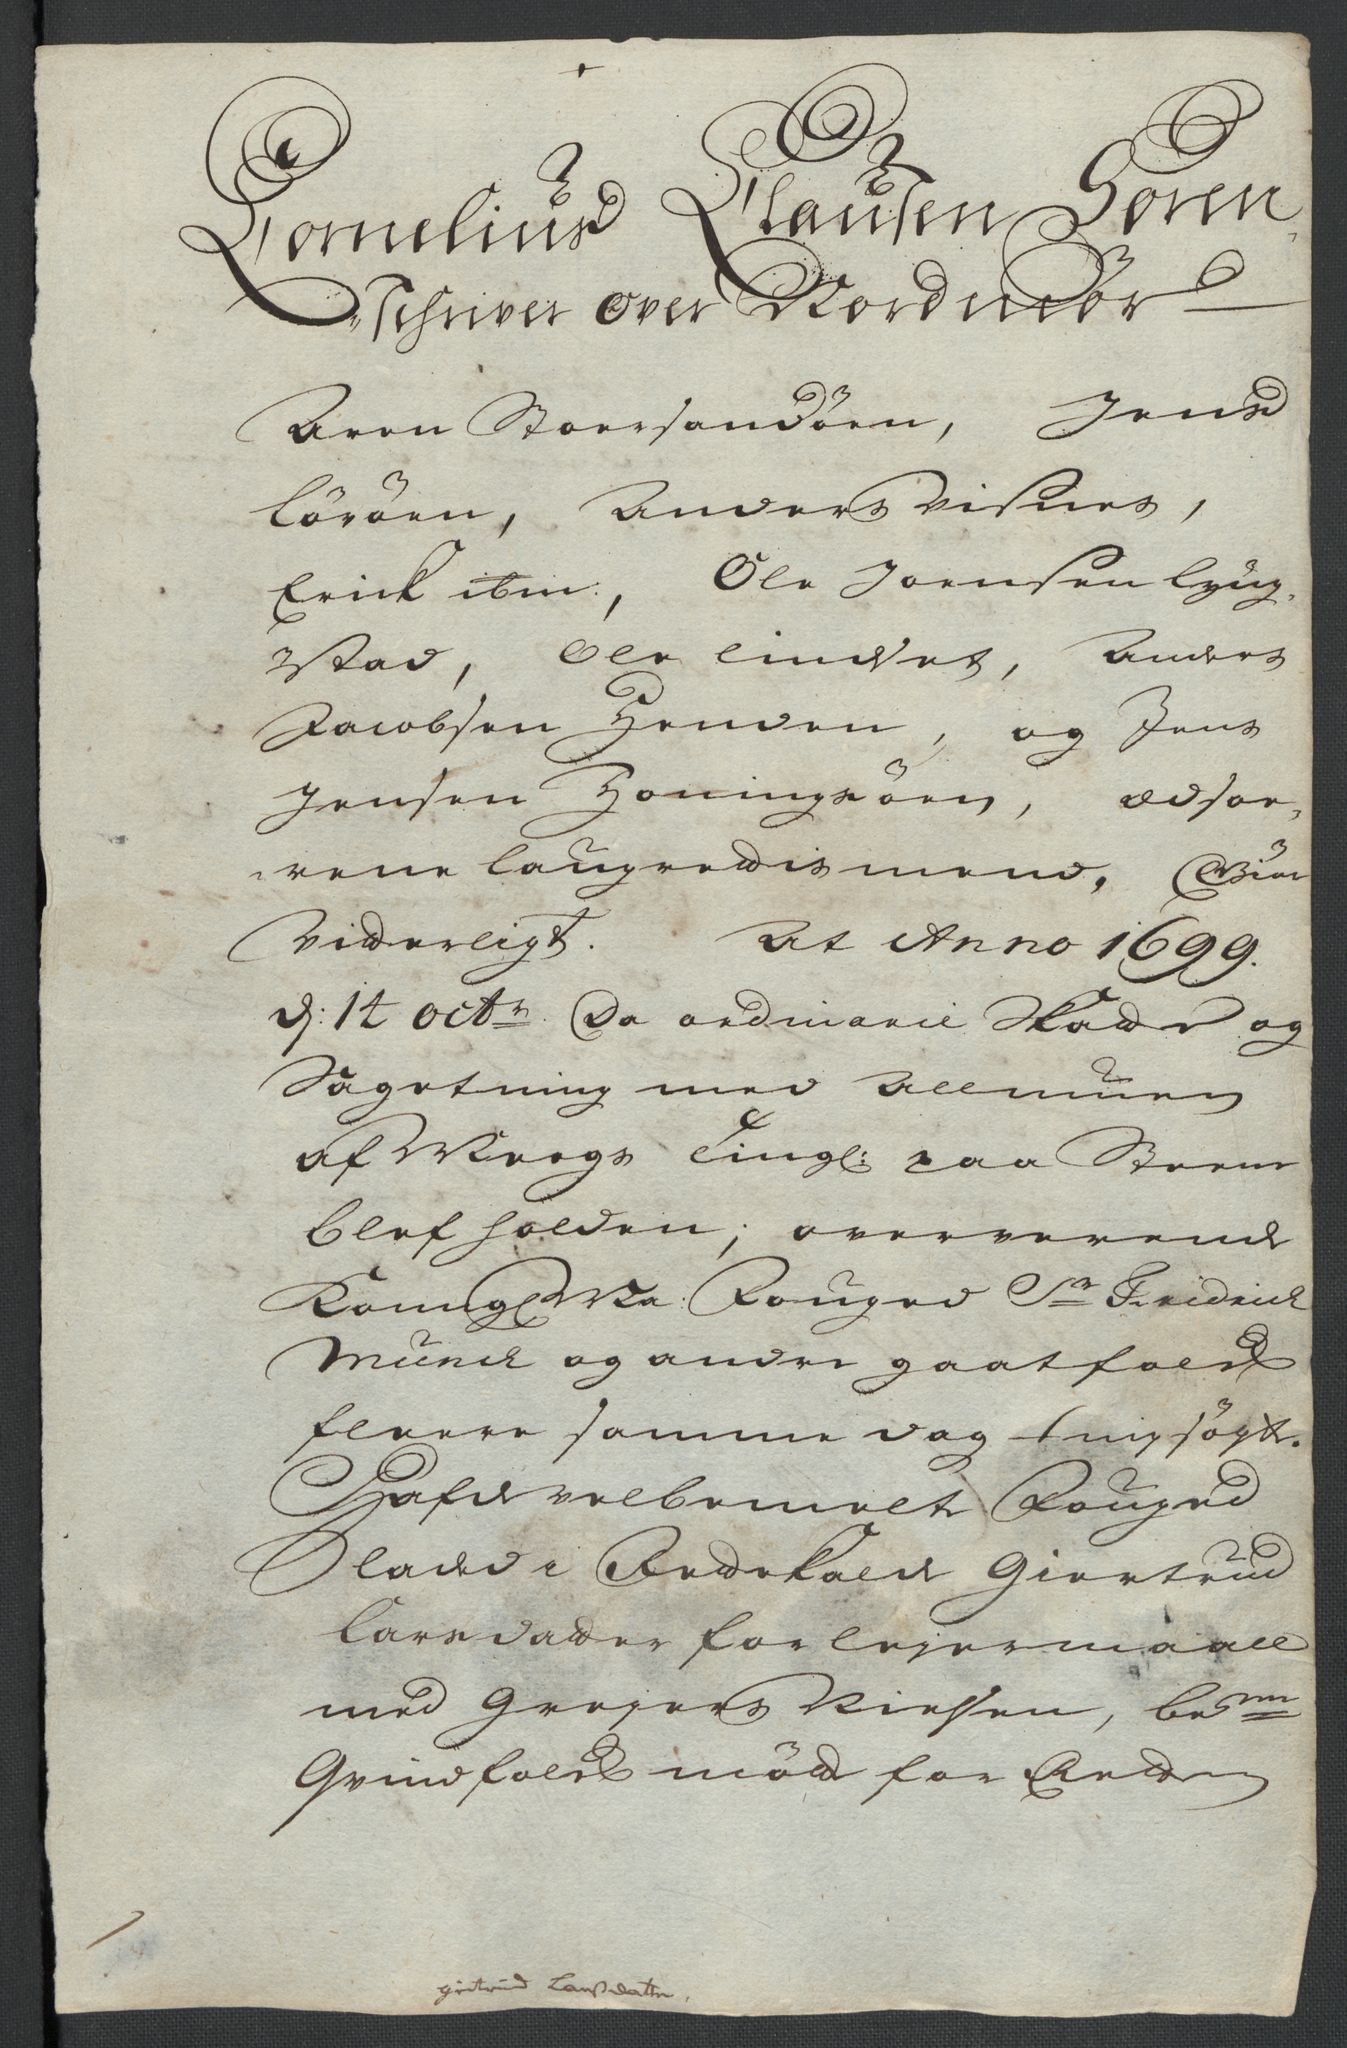 Cornelius Clausen Soren
Schriver over Nordmör
Aren Stoersandöen, Jens
Löröen, Anders Visnes,
Erick ibm:, Ole Joensen Lyng
stad, Ole Lindset, Anders
Jacobsen Henden, og Jens
Jensen Honingsöen, Edsor
rene Laugrettis mend, Giör
Vitterligt. At Anno 1699.
d: 14 octr Da ordinarie Skatte og
Sageting med Allmuen
af Tingl: paa Steene
blef holden, oververende
Kongl Ma: Fouged Sr Fridrich
Münch og andre gaat folck
fleere samme dag tingsögt.
Hafde velbemelte Fouged
Ladet i Rettekalde Giertrud
Larsdatter for Lejermaall
med Grejers Nielsen, bemn
Qvindfolck mötte for Retten
giertrud Larsdatter.